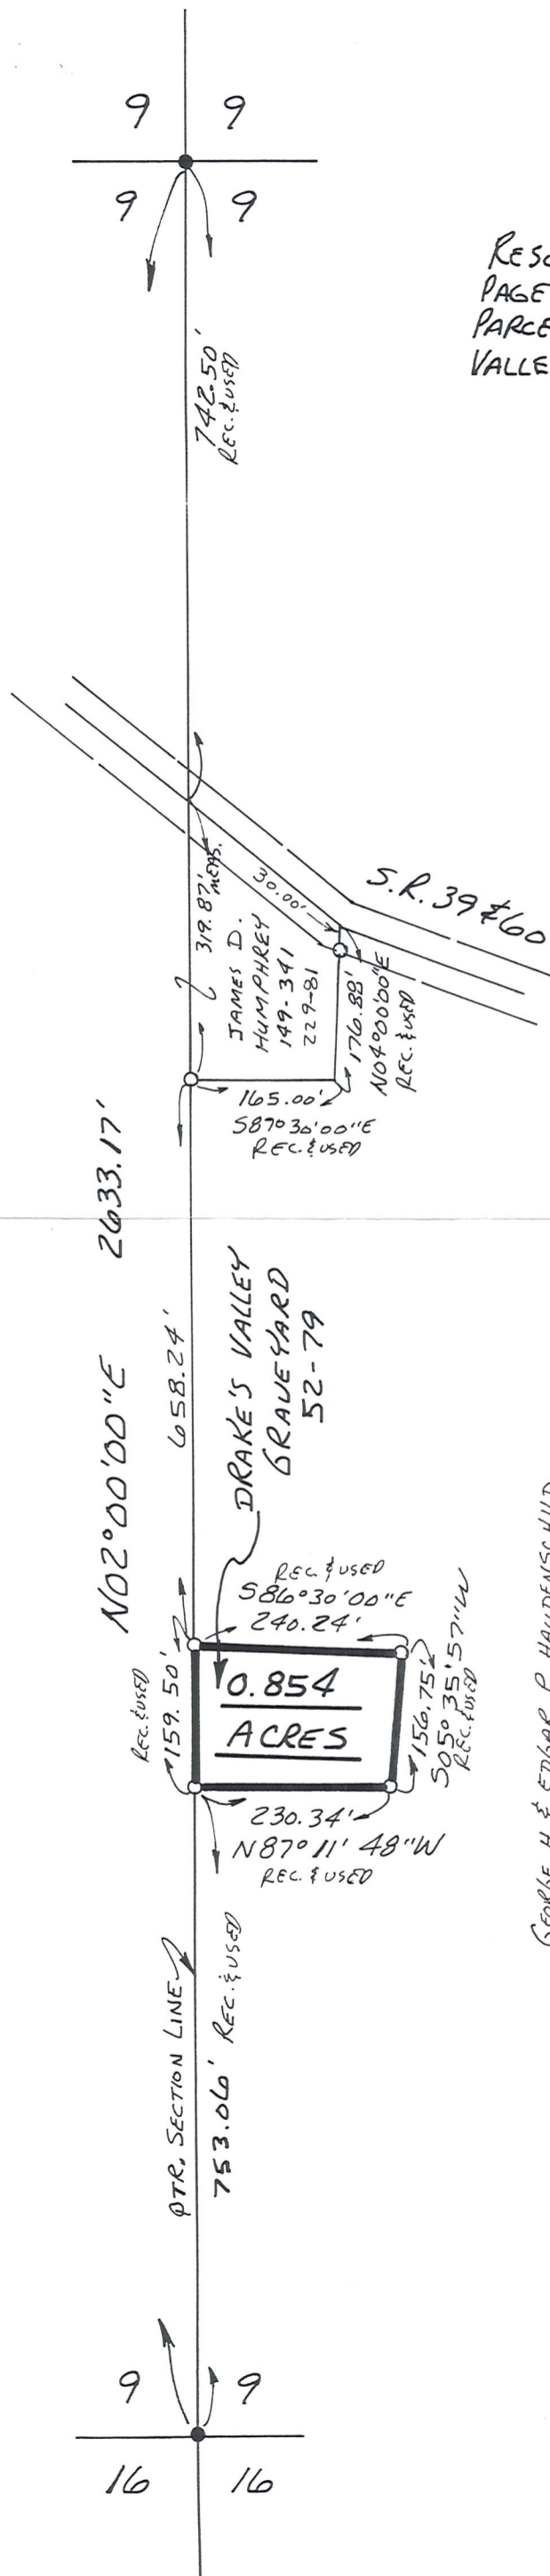 9 9
9 9
RESU
PAGE
PARCE
VALLE
742.50'
REC. & USED
S.R. 39 & 60
30.00'
319.87' MEAS.
JAMES D.
HUMPHREY
149-341
229-81
176.88'
N04°00'00"E
REC. & USED
165.00'
S87°30'00"E
REC. & USED
2633.17'
N02°00'00"E
658.24'
DRAKE'S VALLEY
GRAVEYARD
52-79
REC. & USED
S86°30'00"E
240.24'
REC. & USED
159.50'
0.854
ACRES
156.75'
S05°35'57"W
REC. & USED
230.34'
N87°11'48"W
REC. & USED
GEORGE H & EDGAR P HAUDENSCHILD
QTR. SECTION LINE
753.06' REC. & USED
9 9
16 16